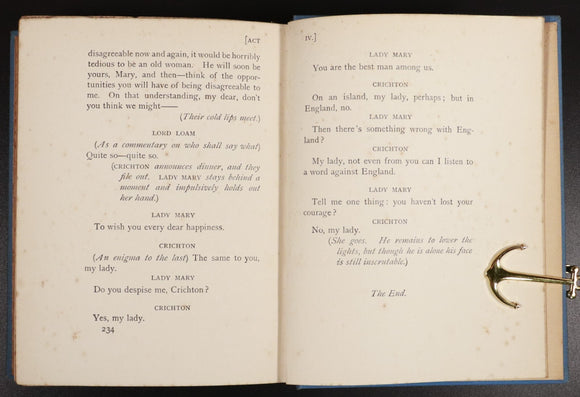 [ACT
disagreeable now and again, it would be horribly
tedious to be an old woman. He will soon be
yours, Mary, and then—think of the oppor-
tunities you will have of being disagreeable to
me. On that understanding, my dear, don't
you think we might——
(Their cold lips meet.)
LORD LOAM
(As a commentary on who shall say what)
Quite so—quite so.
(CRICHTON announces dinner, and they
file out. LADY MARY stays behind a
moment and impulsively holds out
her hand.)
LADY MARY
To wish you every dear happiness.
CRICHTON
(An enigma to the last) The same to you,
my lady.
LADY MARY
Do you despise me, Crichton?
CRICHTON
Yes, my lady.
234
IV.]
LADY MARY
You are the best man among us.
CRICHTON
On an island, my lady, perhaps; but in
England, no.
LADY MARY
Then there's something wrong with Eng-
land?
CRICHTON
My lady, not even from you can I listen to
a word against England.
LADY MARY
Tell me one thing: you haven't lost your
courage?
CRICHTON
No, my lady.
(She goes. He remains to lower the
lights, but though he is alone his face
is still inscrutable.)
The End.